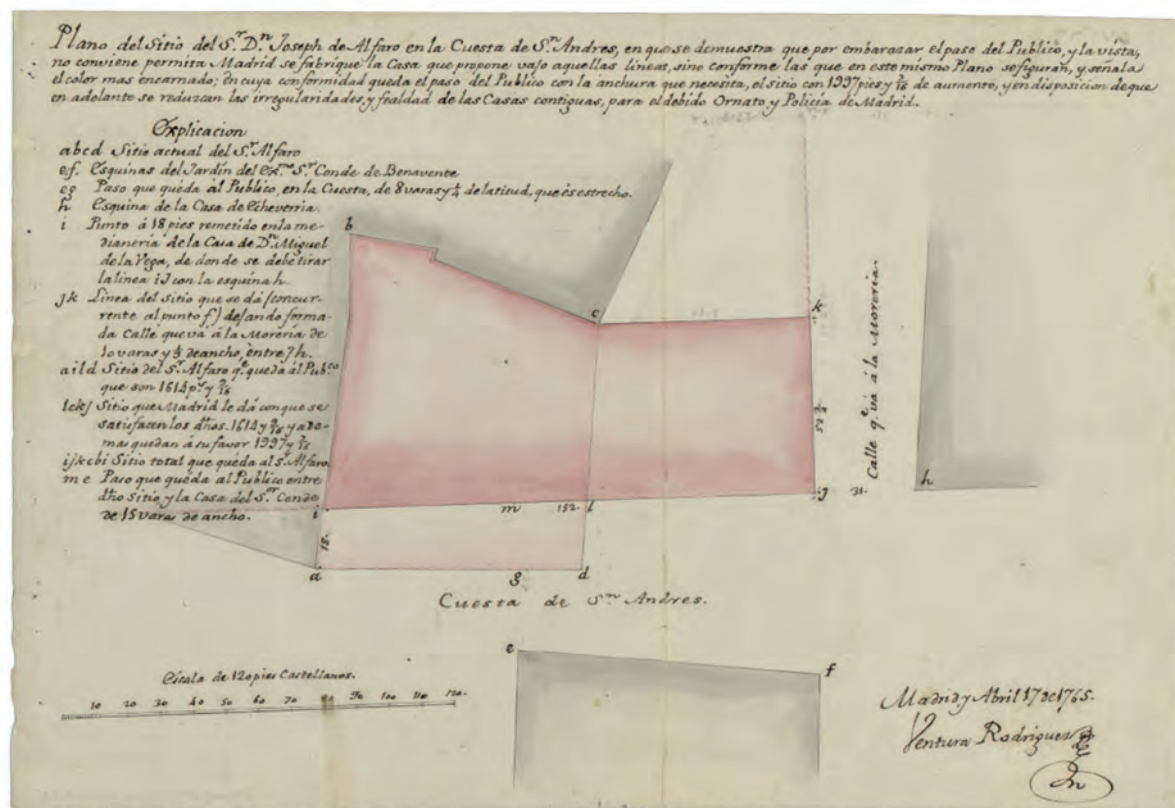 Plano del Sitio del S.r D.n Joseph de Alfaro en la Cuesta de S.n Andres, en que se demuestra que por embarazar el paso del Publico, y la vista,
no conviene permita Madrid se fabrique la Casa que propone vajo aquellas lineas, sino conforme las que en este mismo Plano se figuran, y señala
el color mas encarnado; en cuya conformidad queda el paso del Publico con la anchura que necesita, el sitio con 1997 pies y 7/16 de aumento, y en disposicion de que
en adelante se reduzcan las irregularidades, y fealdad de las Casas contiguas, para el debido Ornato y Policia de Madrid.
Explicacion
abcd Sitio actual del S.r Alfaro
e,f. Esquinas del Jardin del Ex.mo S.r Conde de Benavente
eg Paso que queda al Publico, en la Cuesta, de 8 varas y 1/4 de latitud, que es estrecho.
h Esquina de la Casa de Echeverria.
i Punto á 18 pies remetido en la me-
dianeria de la Casa de D.n Miguel
de la Vega, de donde se debe tirar
la linea iJ con la esquina h.
Jk Linea del Sitio que se dá (concur-
rente al punto f) dejando forma-
da Calle que vá á la Moreria de
10 varas y 1/3 de ancho, entre J h.
aild Sitio del S.r Alfaro q.e queda al Pub.co
que son 1614 p.s y
lckj Sitio que Madrid le dá con que se
satisfacen los dhos. 1614 y y ade-
mas quedan á su favor 1997 y 7/16
ijkcbi Sitio total que queda al S.r Alfaro
m e Paso que queda al Publico entre
dho Sitio, y la Casa del S.r Conde
de 15 varas de ancho.
b
c
k
Calle q.e vá á la Moreria.
52
h
i
m
152.
l
j
31.
18.
a
g
d
Cuesta de S.n Andres.
e
f
Escala de 120 pies Castellanos.
10 20 30 40 50 60 70 80 90 100 110 120.
Madrid y Abril 17 de 1765.
Ventura Rodriguez